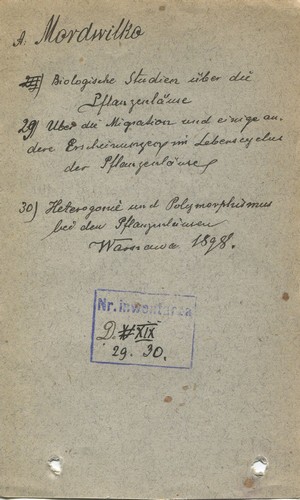 A. Mordwilko
Biologische Studien über die
Pflanzenläuse
29) Über die Migration und einige an-
dere Erscheinungen im Lebenscyclus
der Pflanzenläuse
30) Heterogonie und Polymorphismus
bei den Pflanzenläusen
Warszawa 1898.
Nr. inwentarza
D. XIX
29. 30.